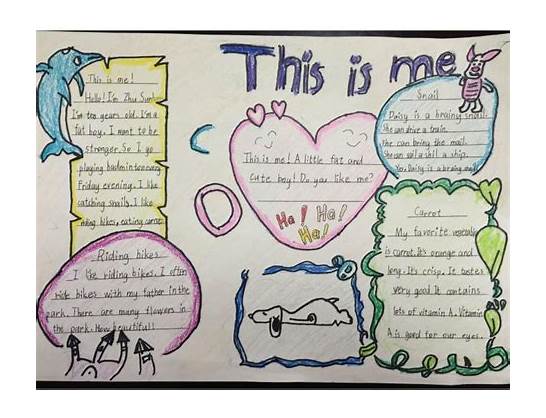 This is me
This is me!
Hello! I'm Zhu
I'm ten years old. I'm a
fat boy. I want to be
stronger. So I go
playing badminton every
Friday evening. I like
catching snails. I like
riding bikes, eating
Riding bikes
I like riding bikes. I often
ride bikes with my father in the
park. There are many flowers in
the park. How beautiful!
This is me! A little fat and
cute boy! Do you like me?
Ha! Ha!
Ha!
Snail
Daisy is a brainy snail.
She can drive a train.
She can bring the mail.
She can sail a ship.
Daisy is a brainy
Carrot
My favorite vegetable
is carrot. It's orange and
long. It's crisp. It tastes
very good. It contains
lots of vitamin A. Vitamin
A is good for our eyes.